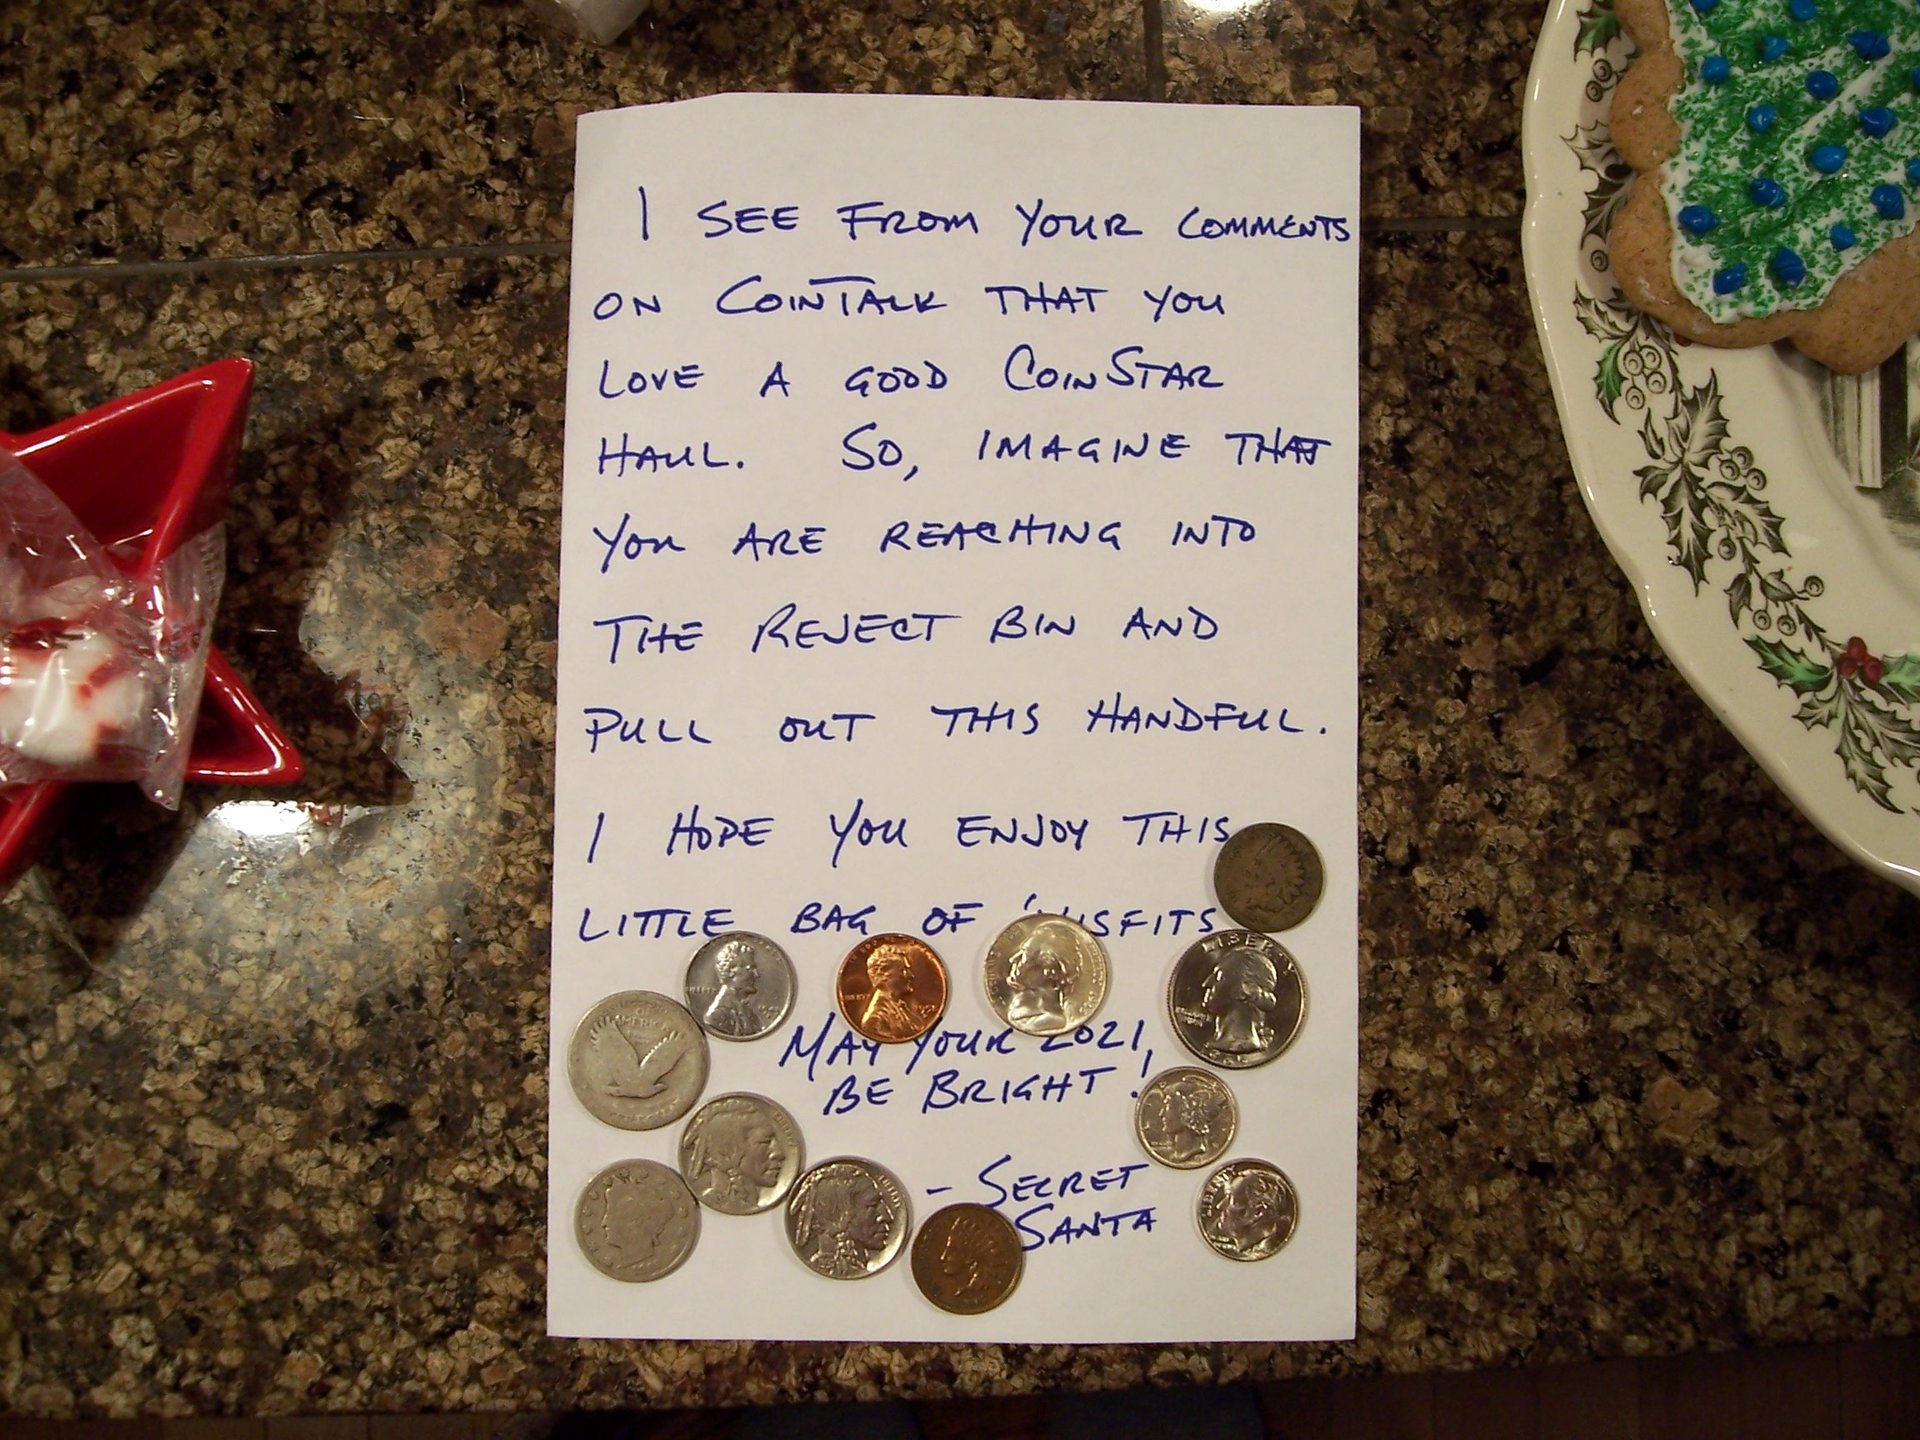 I SEE FROM YOUR COMMENTS
ON COINTALK THAT YOU
LOVE A GOOD COINSTAR
HAUL. SO, IMAGINE THAT
YOU ARE REACHING INTO
THE REJECT BIN AND
PULL OUT THIS HANDFUL.
I HOPE YOU ENJOY THIS
LITTLE BAG OF 'MISFITS
MAY YOUR 2021,
BE BRIGHT!
- SECRET
SANTA